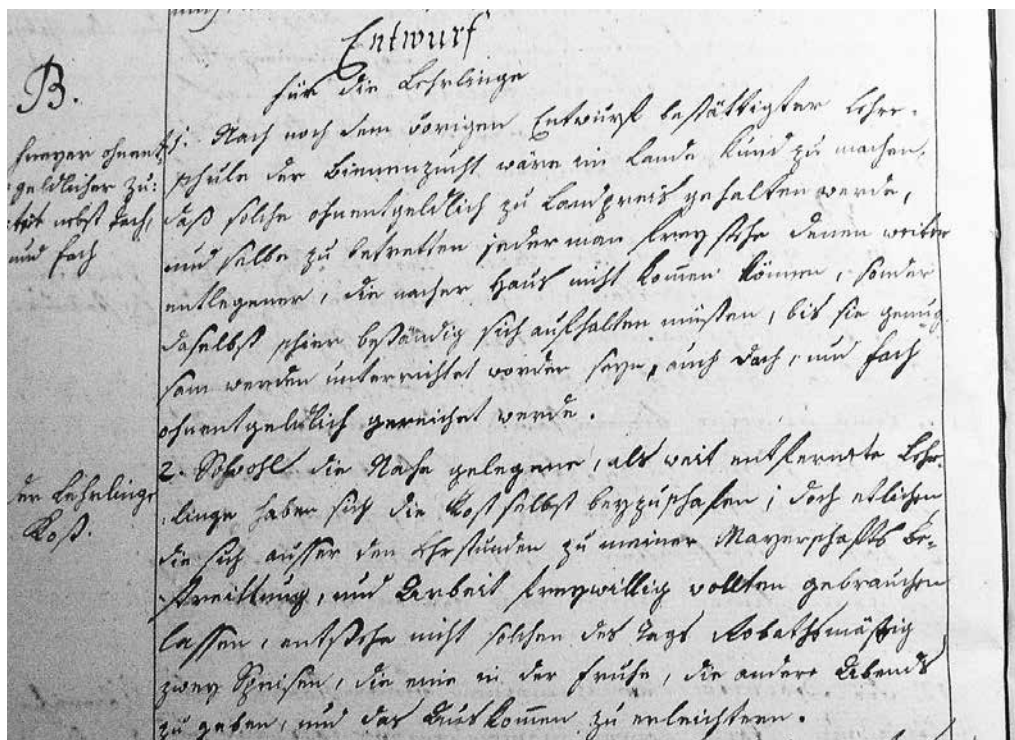 Entwurf
für die Lehrlinge
B.
freyer ohnent„
geldlicher Zu„
tritt nebst Dach,
und Fach
1. Nach noch dem vorigen Entwurf bestättigter Lehr„
schule der Bienenzucht wäre im Lande kund zu machen,
daß solche ohnentgeldlich zu gehalten werde,
und selbe zu betretten jederman frey stehe denen weiter
entlegener, die nacher Haus nicht kommen können, sonder
daselbst schier beständig sich aufhalten müsten, bis sie genug„
sam werden unterrichtet worden seyn, auch Dach, und Fach
ohnentgeldlich gereichet werde.
der Lehrlinge
Kost.
2. Sowohl die Nahe gelegene, als weit entfernte Lehr„
linge haben sich die Kost selbst beyzuschafen; doch etlichen
die sich ausser den Lehrstunden zu meiner Mayerschafts Be„
streittung, und Arbeit freywillig wollten gebrauchen
lassen, entstehe nicht solchen des Tags Robathsmässig
zwey Speisen, die eine in der Fruhe, die andere Abends
zu geben, und das Auskommen zu erleichtern.